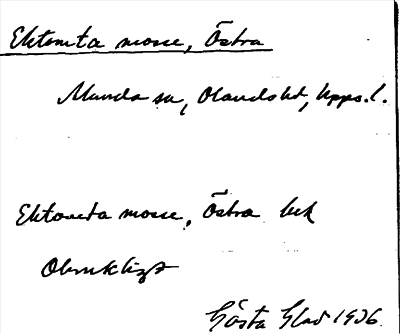 Ektomta mosse, Östra
Munda sn, Olands hd, Upps. l.
Ektomta mosse, Östra bek
Obrukligt
Gösta Glad 1936.